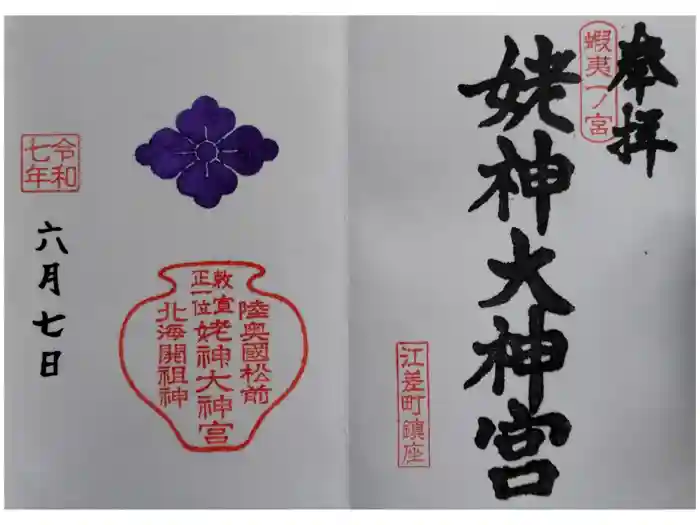 奉拝
蝦夷一ノ宮
姥神大神宮
江差町鎮座
陸奥國松前
敕宣
正一位
姥神大神宮
北海開祖神
令和
七年
六月七日